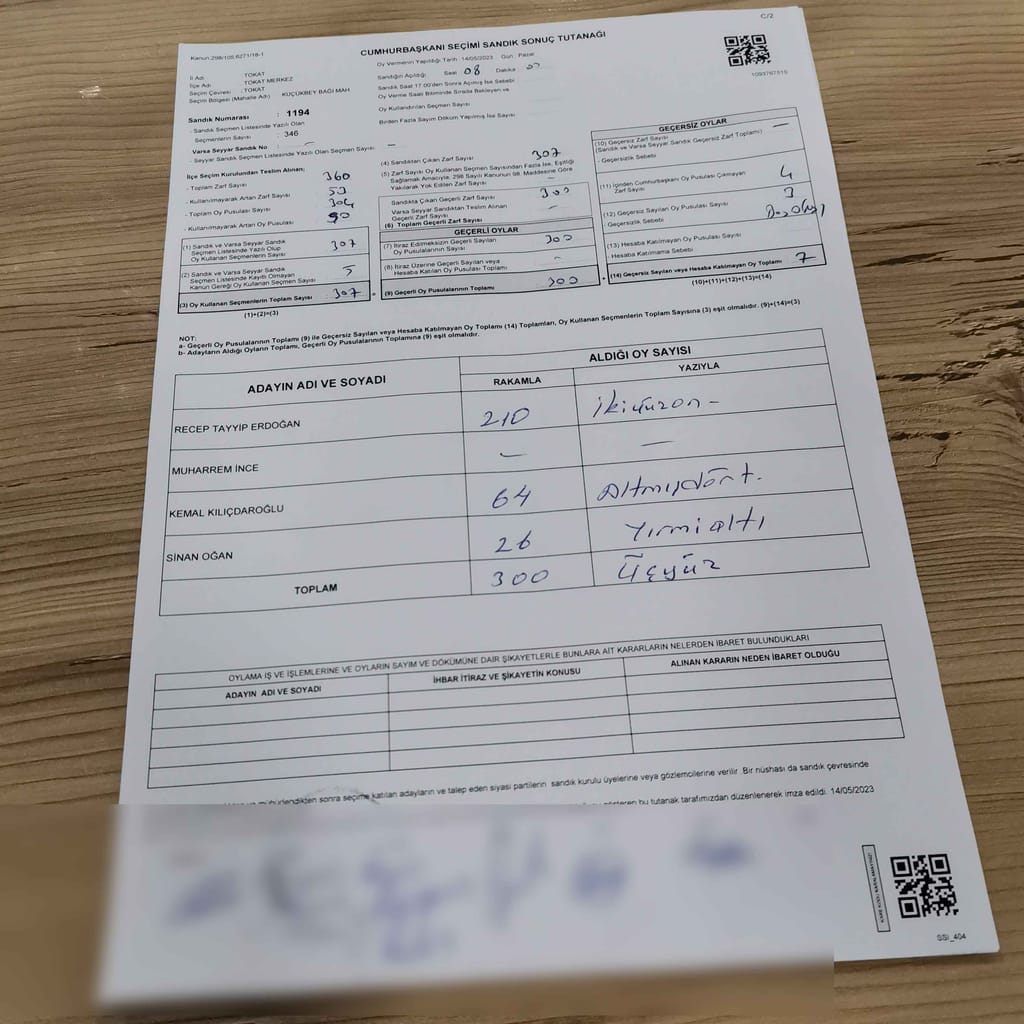 C/2
Kanun:298/105,6271/18-1
CUMHURBAŞKANI SEÇİMİ SANDIK SONUÇ TUTANAĞI
1093767515
İl Adı : TOKAT
İlçe Adı : TOKAT MERKEZ
Seçim Çevresi : TOKAT
Seçim Bölgesi (Mahalle Adı) KÜÇÜKBEY BAĞI MAH
Oy Vermenin Yapıldığı Tarih :14/05/2023 Gün : Pazar
Sandığın Açıldığı Saat 08 Dakika
Sandık Saat 17.00'den Sonra Açılmış İse Sebebi
Oy Verme Saati Bitiminde Sırada Bekleyen ve
Oy Kullandırılan Seçmen Sayısı
Birden Fazla Sayım Döküm Yapılmış İse Sayısı
Sandık Numarası : 1194
- Sandık Seçmen Listesinde Yazılı Olan
Seçmenlerin Sayısı : 346
Varsa Seyyar Sandık No
- Seyyar Sandık Seçmen Listesinde Yazılı Olan Seçmen Sayısı: -
İlçe Seçim Kurulundan Teslim Alınan;
- Toplam Zarf Sayısı 360
- Kullanılmayarak Artan Zarf Sayısı 53
- Toplam Oy Pusulası Sayısı
- Kullanılmayarak Artan Oy Pusulası
(1) Sandık ve Varsa Seyyar Sandık
Seçmen Listesinde Yazılı Olup
Oy Kullanan Seçmenlerin Sayısı 307
(2) Sandık ve Varsa Seyyar Sandık
Seçmen Listesinde Kayıtlı Olmayan
Kanun Gereği Oy Kullanan Seçmen Sayısı
(3) Oy Kullanan Seçmenlerin Toplam Sayısı 307
(1)+(2)=(3)
(4) Sandıktan Çıkan Zarf Sayısı 307
(5) Zarf Sayısı Oy Kullanan Seçmen Sayısından Fazla İse, Eşitliği
Sağlamak Amacıyla, 298 Sayılı Kanunun 98. Maddesine Göre
Yakılarak Yok Edilen Zarf Sayısı -
Sandıkta Çıkan Geçerli Zarf Sayısı 300
Varsa Seyyar Sandıktan Teslim Alınan
Geçerli Zarf Sayısı -
(6) Toplam Geçerli Zarf Sayısı
GEÇERLİ OYLAR
(7) İtiraz Edilmeksizin Geçerli Sayılan
Oy Pusulalarının Sayısı 300
(8) İtiraz Üzerine Geçerli Sayılan veya
Hesaba Katılan Oy Pusulası Toplamı -
(9) Geçerli Oy Pusulalarının Toplamı 300
GEÇERSİZ OYLAR
(10) Geçersiz Zarf Sayısı -
(Sandık ve Varsa Seyyar Sandık Geçersiz Zarf Toplamı)
- Geçersizlik Sebebi
(11) İçinden Cumhurbaşkanı Oy Pusulası Çıkmayan
Zarf Sayısı 4
(12) Geçersiz Sayılan Oy Pusulası Sayısı 3
Geçersizlik Sebebi
(13) Hesaba Katılmayan Oy Pusulası Sayısı
Hesaba Katılmama Sebebi
(14) Geçersiz Sayılan veya Hesaba Katılmayan Oy Toplamı 7
(10)+(11)+(12)+(13)=(14)
NOT:
a- Geçerli Oy Pusulalarının Toplamı (9) ile Geçersiz Sayılan veya Hesaba Katılmayan Oy Toplamı (14) Toplamları, Oy Kullanan Seçmenlerin Toplam Sayısına (3) eşit olmalıdır. (9)+(14)=(3)
b- Adayların Aldığı Oyların Toplamı, Geçerli Oy Pusulalarının Toplamına (9) eşit olmalıdır.
ADAYIN ADI VE SOYADI
ALDIĞI OY SAYISI
RAKAMLA YAZIYLA
RECEP TAYYİP ERDOĞAN 210 İkiyüzon -
MUHARREM İNCE - -
KEMAL KILIÇDAROĞLU 64 Altmışdört.
SİNAN OĞAN 26 Yirmialtı
TOPLAM 300 Üçyüz
OYLAMA İŞ VE İŞLEMLERİNE VE OYLARIN SAYIM VE DÖKÜMÜNE DAİR ŞİKAYETLERLE BUNLARA AİT KARARLARIN NELERDEN İBARET BULUNDUKLARI
ADAYIN ADI VE SOYADI İHBAR İTİRAZ VE ŞİKAYETİN KONUSU ALINAN KARARIN NEDEN İBARET OLDUĞU
mühürlendikten sonra seçime katılan adayların ve talep eden siyasi partilerin sandık kurulu üyelerine veya gözlemcilerine verilir. Bir nüshası da sandık çevresinde
gösteren bu tutanak tarafımızdan düzenlenerek imza edildi. 14/05/2023
SSİ_404